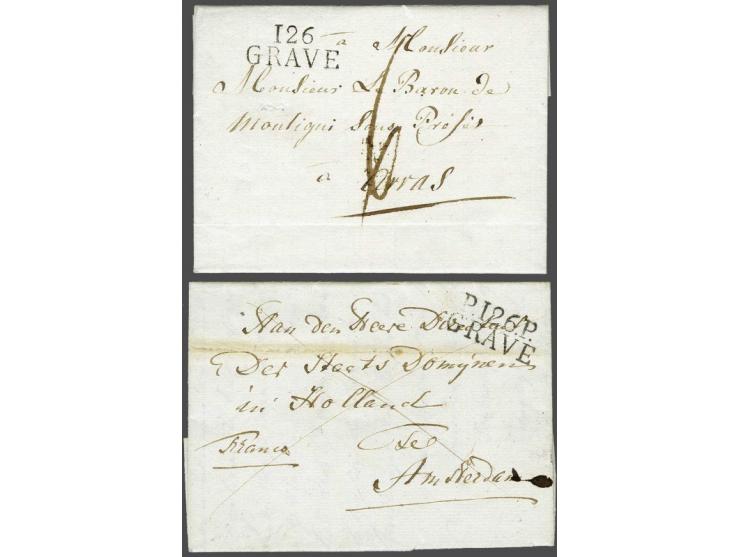 126
GRAVE
à Monsieur
Monsieur Le Baron de
Montigni Sous Préfet
à Arras
P.126.P.
GRAVE
Aan den Heere
Der Staats Domynen
in Holland
Franco te
Amsterdam